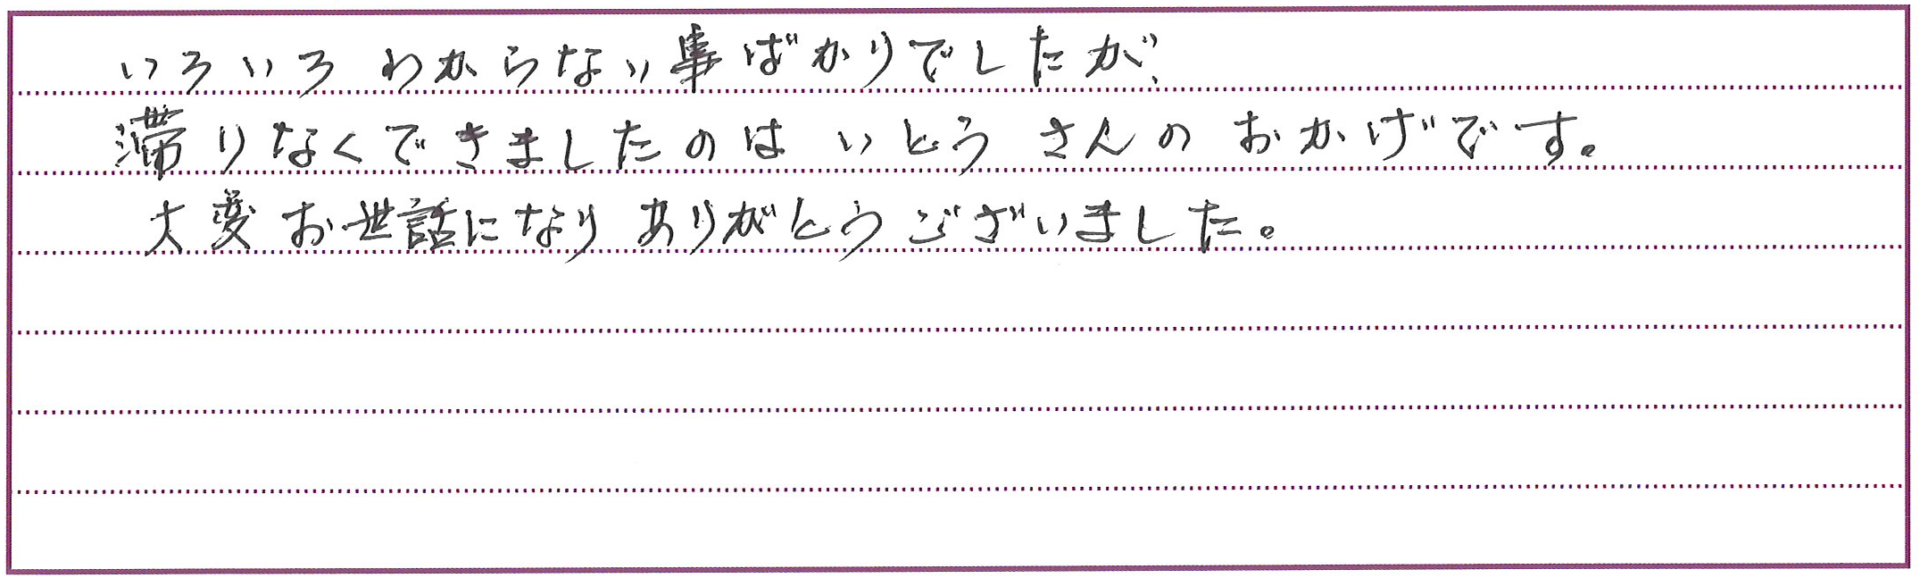 いろいろわからない事ばかりでしたが、
滞りなくできましたのは いとう さんの おかげです。
大変お世話になりありがとうございました。